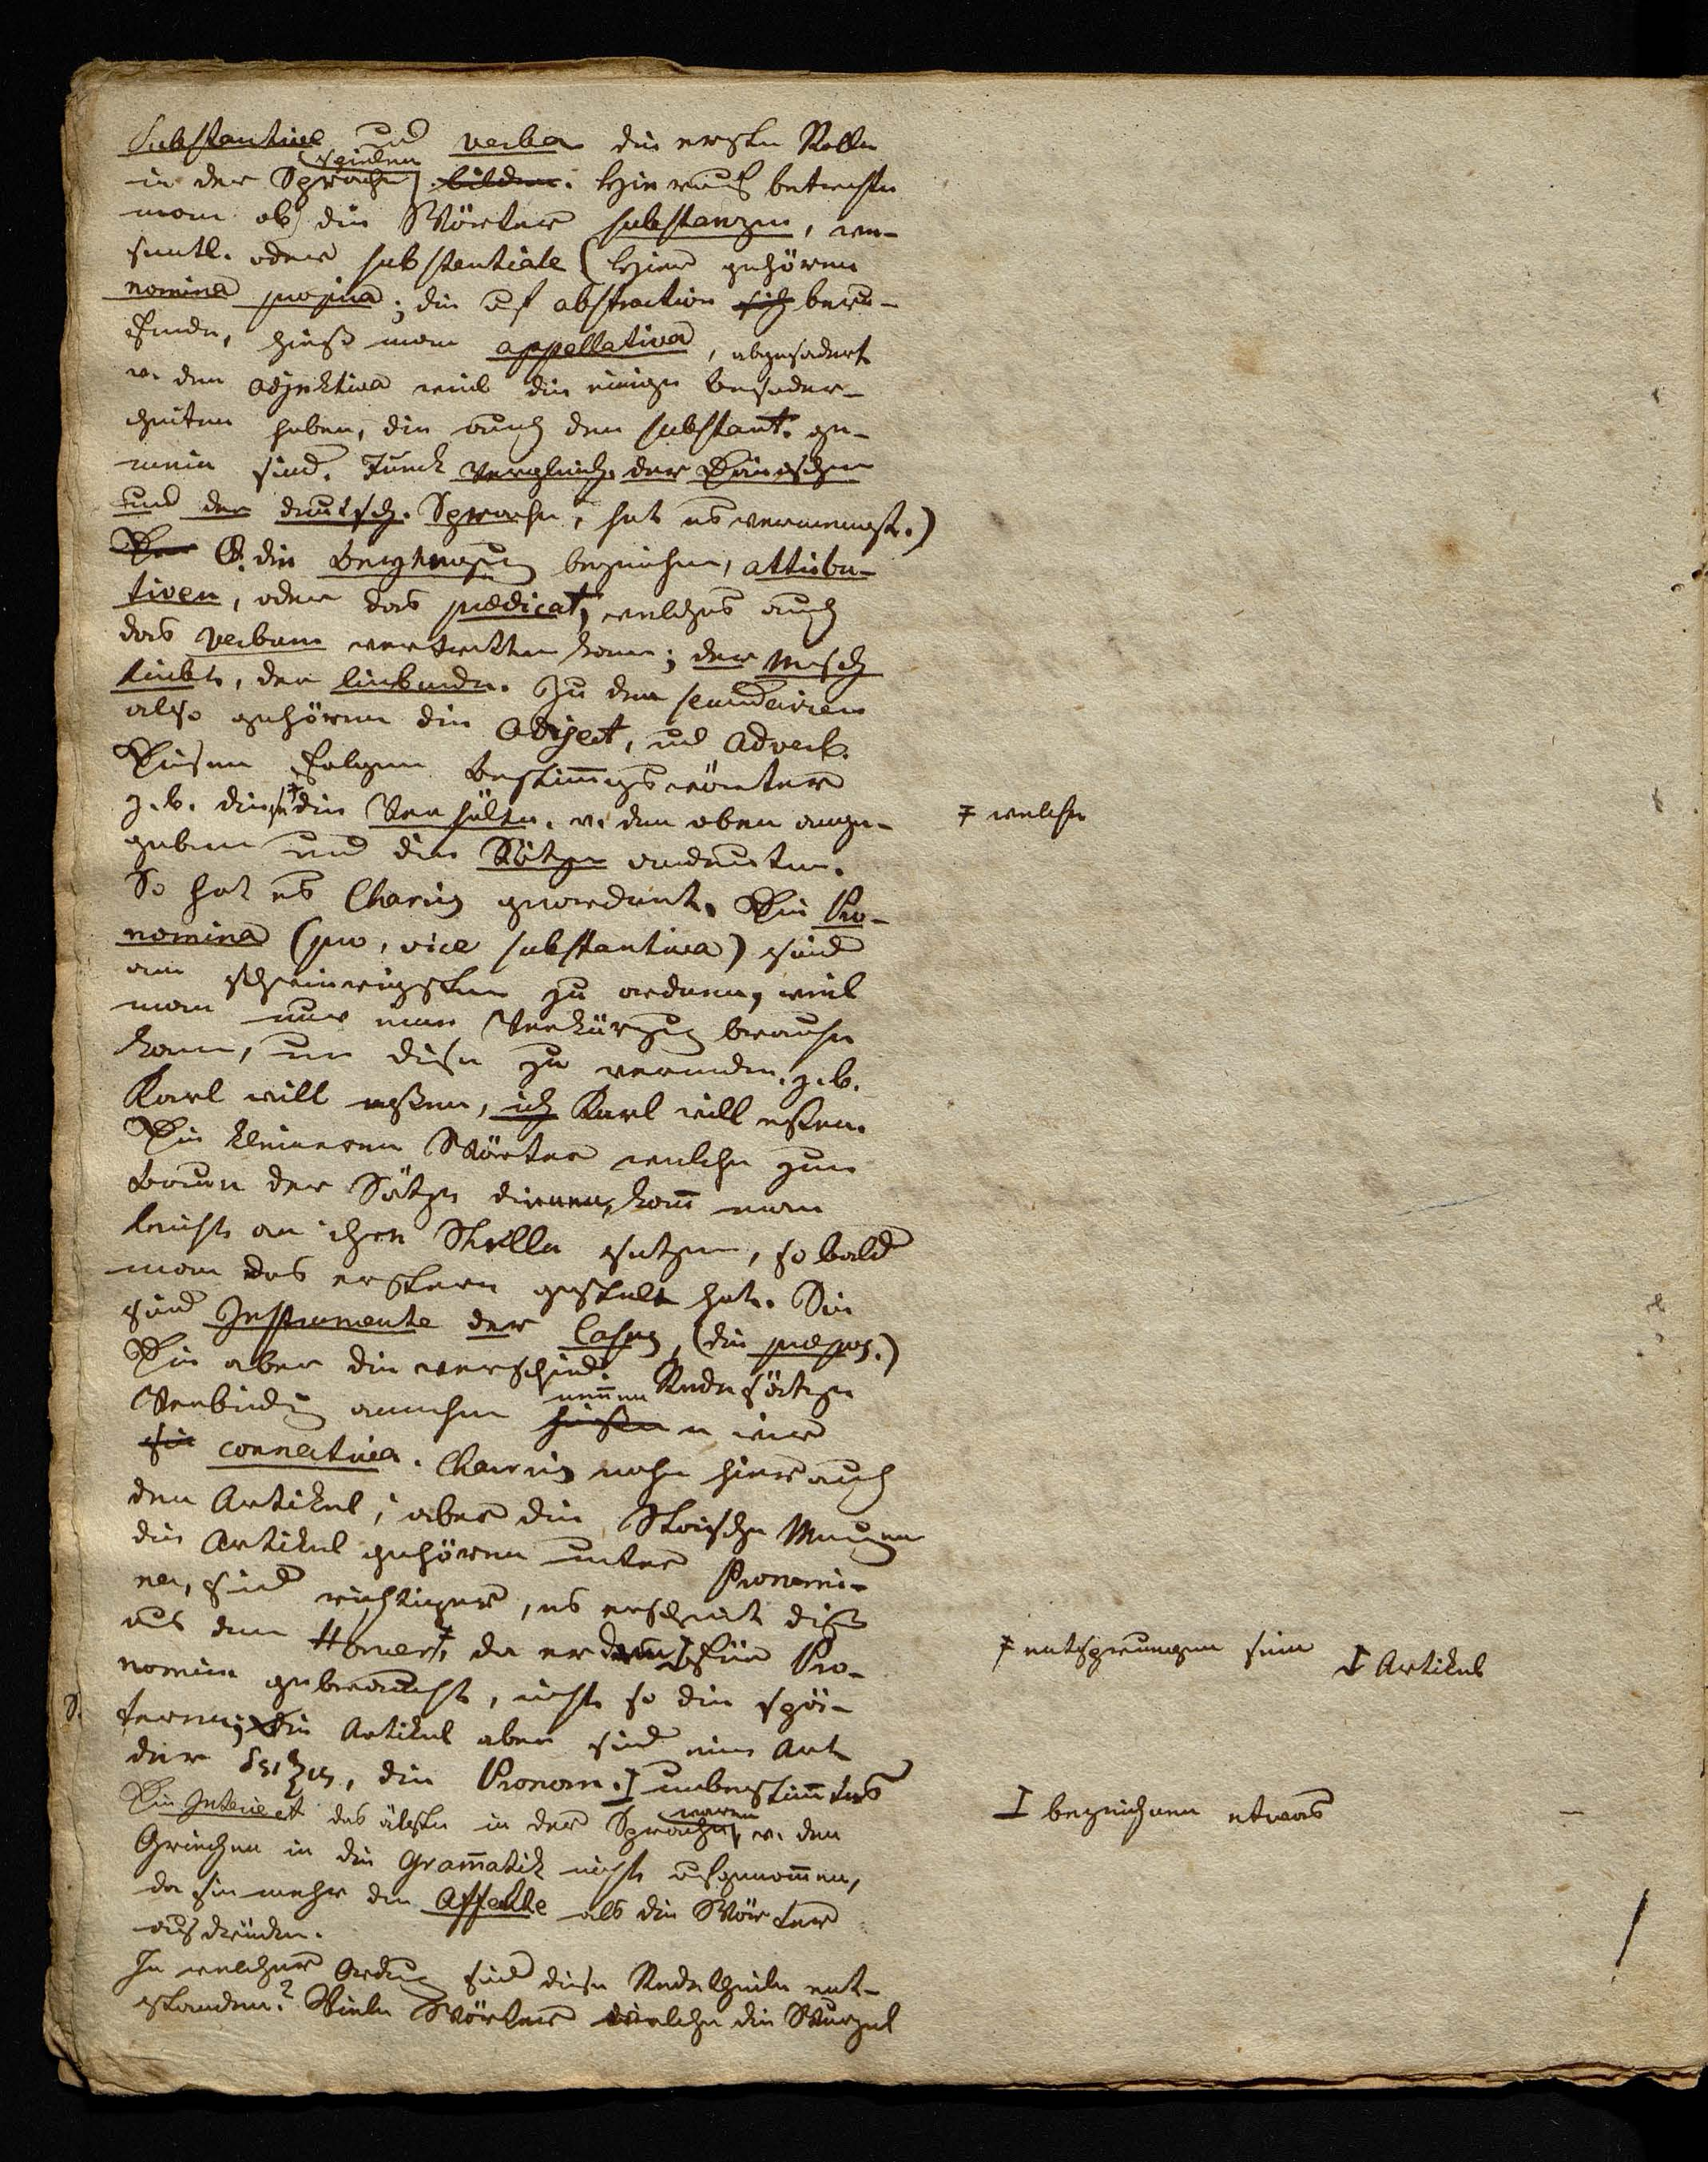 Substantive und verba die erste Rolle
in der Sprache spielen bilden. Hierauf betrachte
man ob die Wörter substanzen, we-
sentl. oder substentiale (Hier gehören
nomina propria; die auf abstraction sich beru-
henden, hieß man appellativa, abgesondert
v. den adjektiva weil die einige besonder-
heiten haben, die auch den substant. ge-
mein sind. Tunck Vergleich. der Dänischen
und der deutsch. Sprache, hat es vermengt.)
Der die bezeichnen, attribu-
tiven, oder das prædicat, welches auch
das verbum vertretten kann; der Mensch
liebt, der liebende. Zu den secundairen
also gehören die Adject, und Adverb.
Diesen folgen Bestim̅gswörter
z. b. diese ‡ die Verhältn. v. den oben ange-
‡ welche
gebenen und die Sätze andeuten.
So hat es Charis geordnet. Die Pro-
nomina (pro, vice substantiva) sind
am schwierigsten zu ordnen, weil
man nur eine Verkürzung brauchen
kann, um diese zu vermeiden. z. b.
Karl will essen, ich Karl will essen.
Die kleineren Wörter welche zum
Bauen der Sätze dienen, kan̅ man
leicht an ihre Stelle setzen, so bald
man das erstere gestellt hat. Sie
sind Instrumente der Casus, (die præpos.)
Die aber die verschied. Redesätze
Verbindung machen nen̅en heißen wir
sie connectiva. Charis nahm hier auch
den Artikel; aber die Stoische Meinung
die Artikel gehören unter Pronomi-
na, sind richtiger, es erscheint dieß
aus dem Homer ‡, da er den für Pro-
‡ entsprungen sein
I Artikel
nomin gebraucht, nicht so die spä-
teren; Die Artikel aber sind eine Art
der δειξις, die Pronom. I unbestim̅tes
I bezeichnen etwas
Die Interiect das älteste in der Sprache, waren v. den
Griechen in die Gram̅atik nicht aufgenom̅en,
da sie mehr die Affekte als die Wörter
ausdrücken.
In welcher Ordnung sind diese Redetheile ent-
standen? Viele Wörter welche die Wurzel